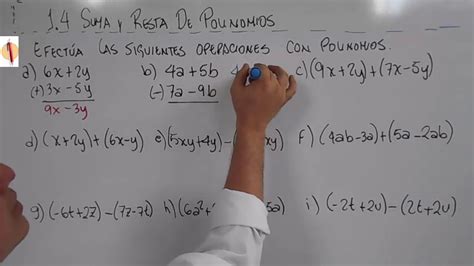 1.4 SUMA Y RESTA DE POLINOMIOS
EFECTÚA LAS SIGUIENTES OPERACIONES CON POLINOMIOS.
a) 6x+2y b) 4a+5b 4 c) (9x+2y)+(7x-5y)
(+) 3x-5y (-) 7a-9b
9x-3y
d) (x+2y)+(6x-y) e) (5xy+4y)-( xy) f) (4ab-3a)+(5a-2ab)
g) (-6t+2z)-(7z-7t) h) (6a²+ 5a) i) (-2t+2u)-(2t+2u)